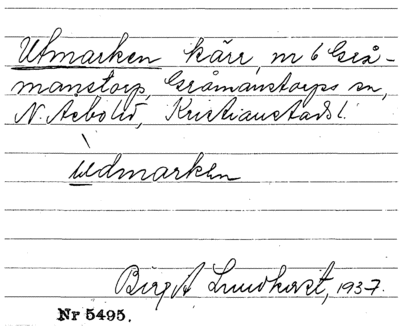 Utmarken kärr, m 6 Grå-
manstorp, Gråmanstorps sn,
N. Åsbo hd, Kristianstads l.
ùdmarken
Birgit Lundkvist, 1937.
Nr 5495.